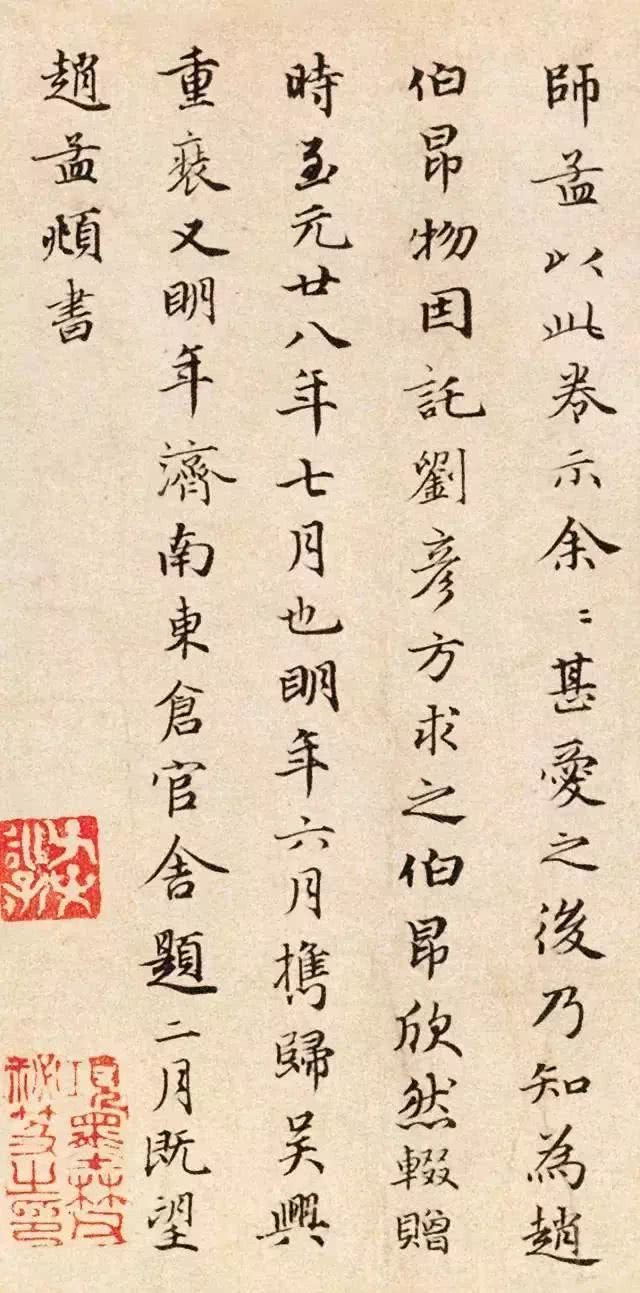 師孟以此卷示余〻甚愛之後乃知為趙
伯昂物因託劉彥方求之伯昂欣然輟贈
時至元廿八年七月也明年六月攜歸吴興
重裝又明年濟南東倉官舍題二月既望
趙孟頫書
項墨林父
秘笈之印